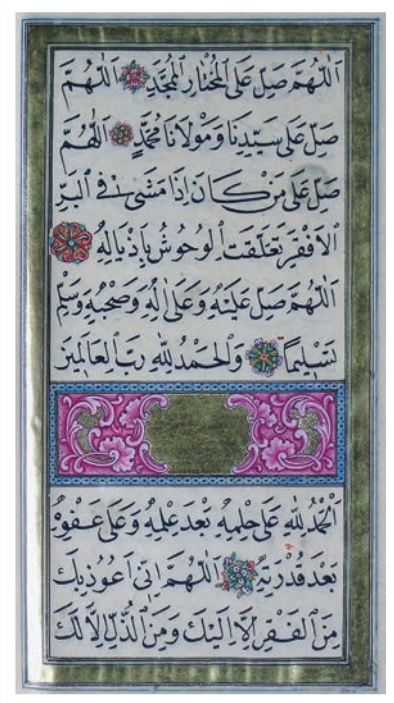 اَللّٰهُمَّ صَلِّ عَلَى الْمُخْتَارِ الْمُمَجَّدِ اَللّٰهُمَّ
صَلِّ عَلٰى سَيِّدِنَا وَمَوْلَانَا مُحَمَّدٍ اَللّٰهُمَّ
صَلِّ عَلٰى مَنْ كَانَ اِذَا مَشٰى فِى الْبَرِّ
الْاَقْفَرِ تَعَلَّقَتِ الْوُحُوشُ بِاَذْيَالِهِ
اَللّٰهُمَّ صَلِّ عَلَيْهِ وَعَلٰى اٰلِهِ وَصَحْبِهِ وَسَلِّمْ
تَسْلِيمًا وَالْحَمْدُ لِلّٰهِ رَبِّ الْعَالَمِينَ
اَلْحَمْدُ لِلّٰهِ عَلٰى حِلْمِهِ بَعْدَ عِلْمِهِ وَعَلٰى عَفْوِهِ
بَعْدَ قُدْرَتِهِ اَللّٰهُمَّ اِنِّى اَعُوذُ بِكَ
مِنَ الْفَقْرِ اِلَّا اِلَيْكَ وَمِنَ الذُّلِّ اِلَّا لَكَ